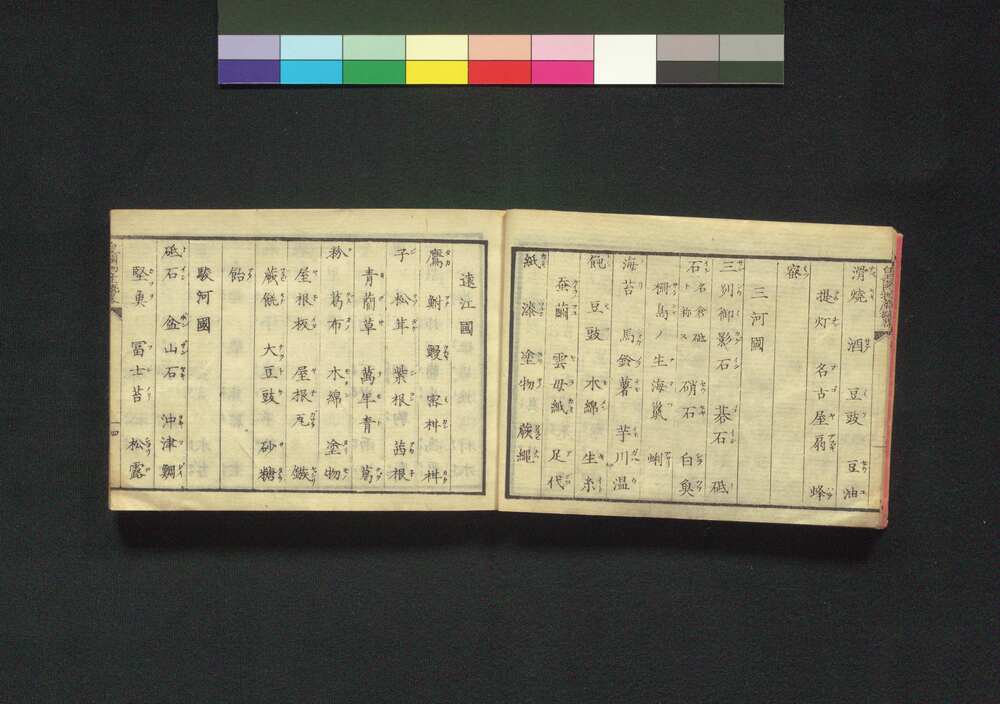 滑焼 酒 豆豉 豆油
提灯 名古屋扇 蜂
密
三河國
三別御影石 碁石 砥
石 名倉砥ト称ス 硝石 白臭
柵島ノ生海鼠 蜊
海苔 馬鈴薯 芋川温
飩 豆豉 木綿 生糸
蚕繭 雲母紙 足代
紙 漆 塗物 蕨縄
遠江國
鷹 鮒 鰻 密柑 柑
子 松茸 紫根 茜根
青藺草 萬年青 葛
粉 葛布 木綿 塗物
屋根板 屋根瓦 鐵
蕨餻 大豆豉 砂糖
飴
駿河國
砥石 盆山石 沖津鯛
堅魚 冨士苔 松露
十四